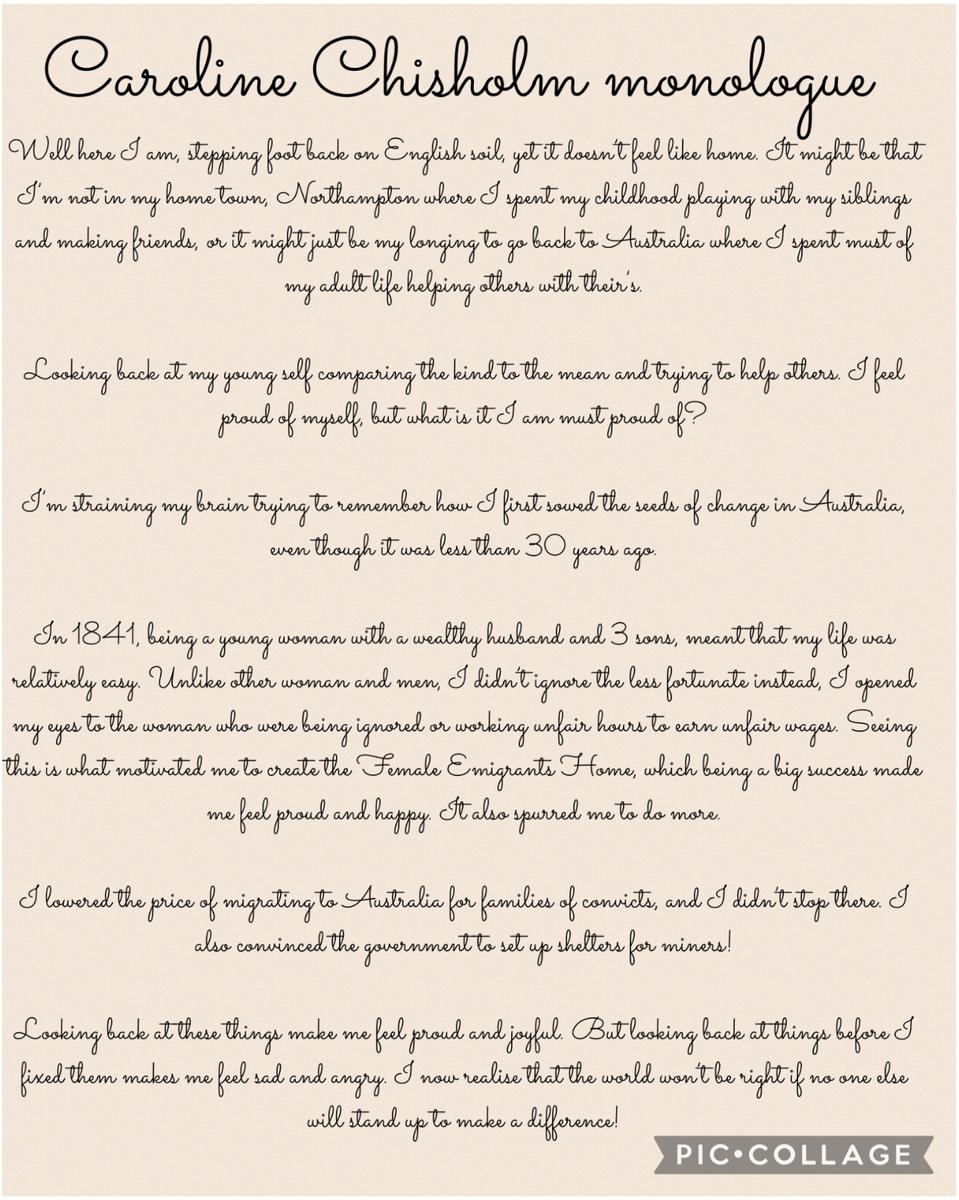 Caroline Chisholm monologue
Well here I am, stepping foot back on English soil, yet it doesn't feel like home. It might be that
I'm not in my home town, Northampton where I spent my childhood playing with my siblings
and making friends, or it might just be my longing to go back to Australia where I spent must of
my adult life helping others with their's.
Looking back at my young self comparing the kind to the mean and trying to help others. I feel
proud of myself, but what is it I am must proud of?
I'm straining my brain trying to remember how I first sowed the seeds of change in Australia,
even though it was less than 30 years ago.
In 1841, being a young woman with a wealthy husband and 3 sons, meant that my life was
relatively easy. Unlike other woman and men, I didn't ignore the less fortunate instead, I opened
my eyes to the woman who were being ignored or working unfair hours to earn unfair wages. Seeing
this is what motivated me to create the Female Emigrants Home, which being a big success made
me feel proud and happy. It also spurred me to do more.
I lowered the price of migrating to Australia for families of convicts, and I didn't stop there. I
also convinced the government to set up shelters for miners!
Looking back at these things make me feel proud and joyful. But looking back at things before I
fixed them makes me feel sad and angry. I now realise that the world won't be right if no one else
will stand up to make a difference!
PIC•COLLAGE